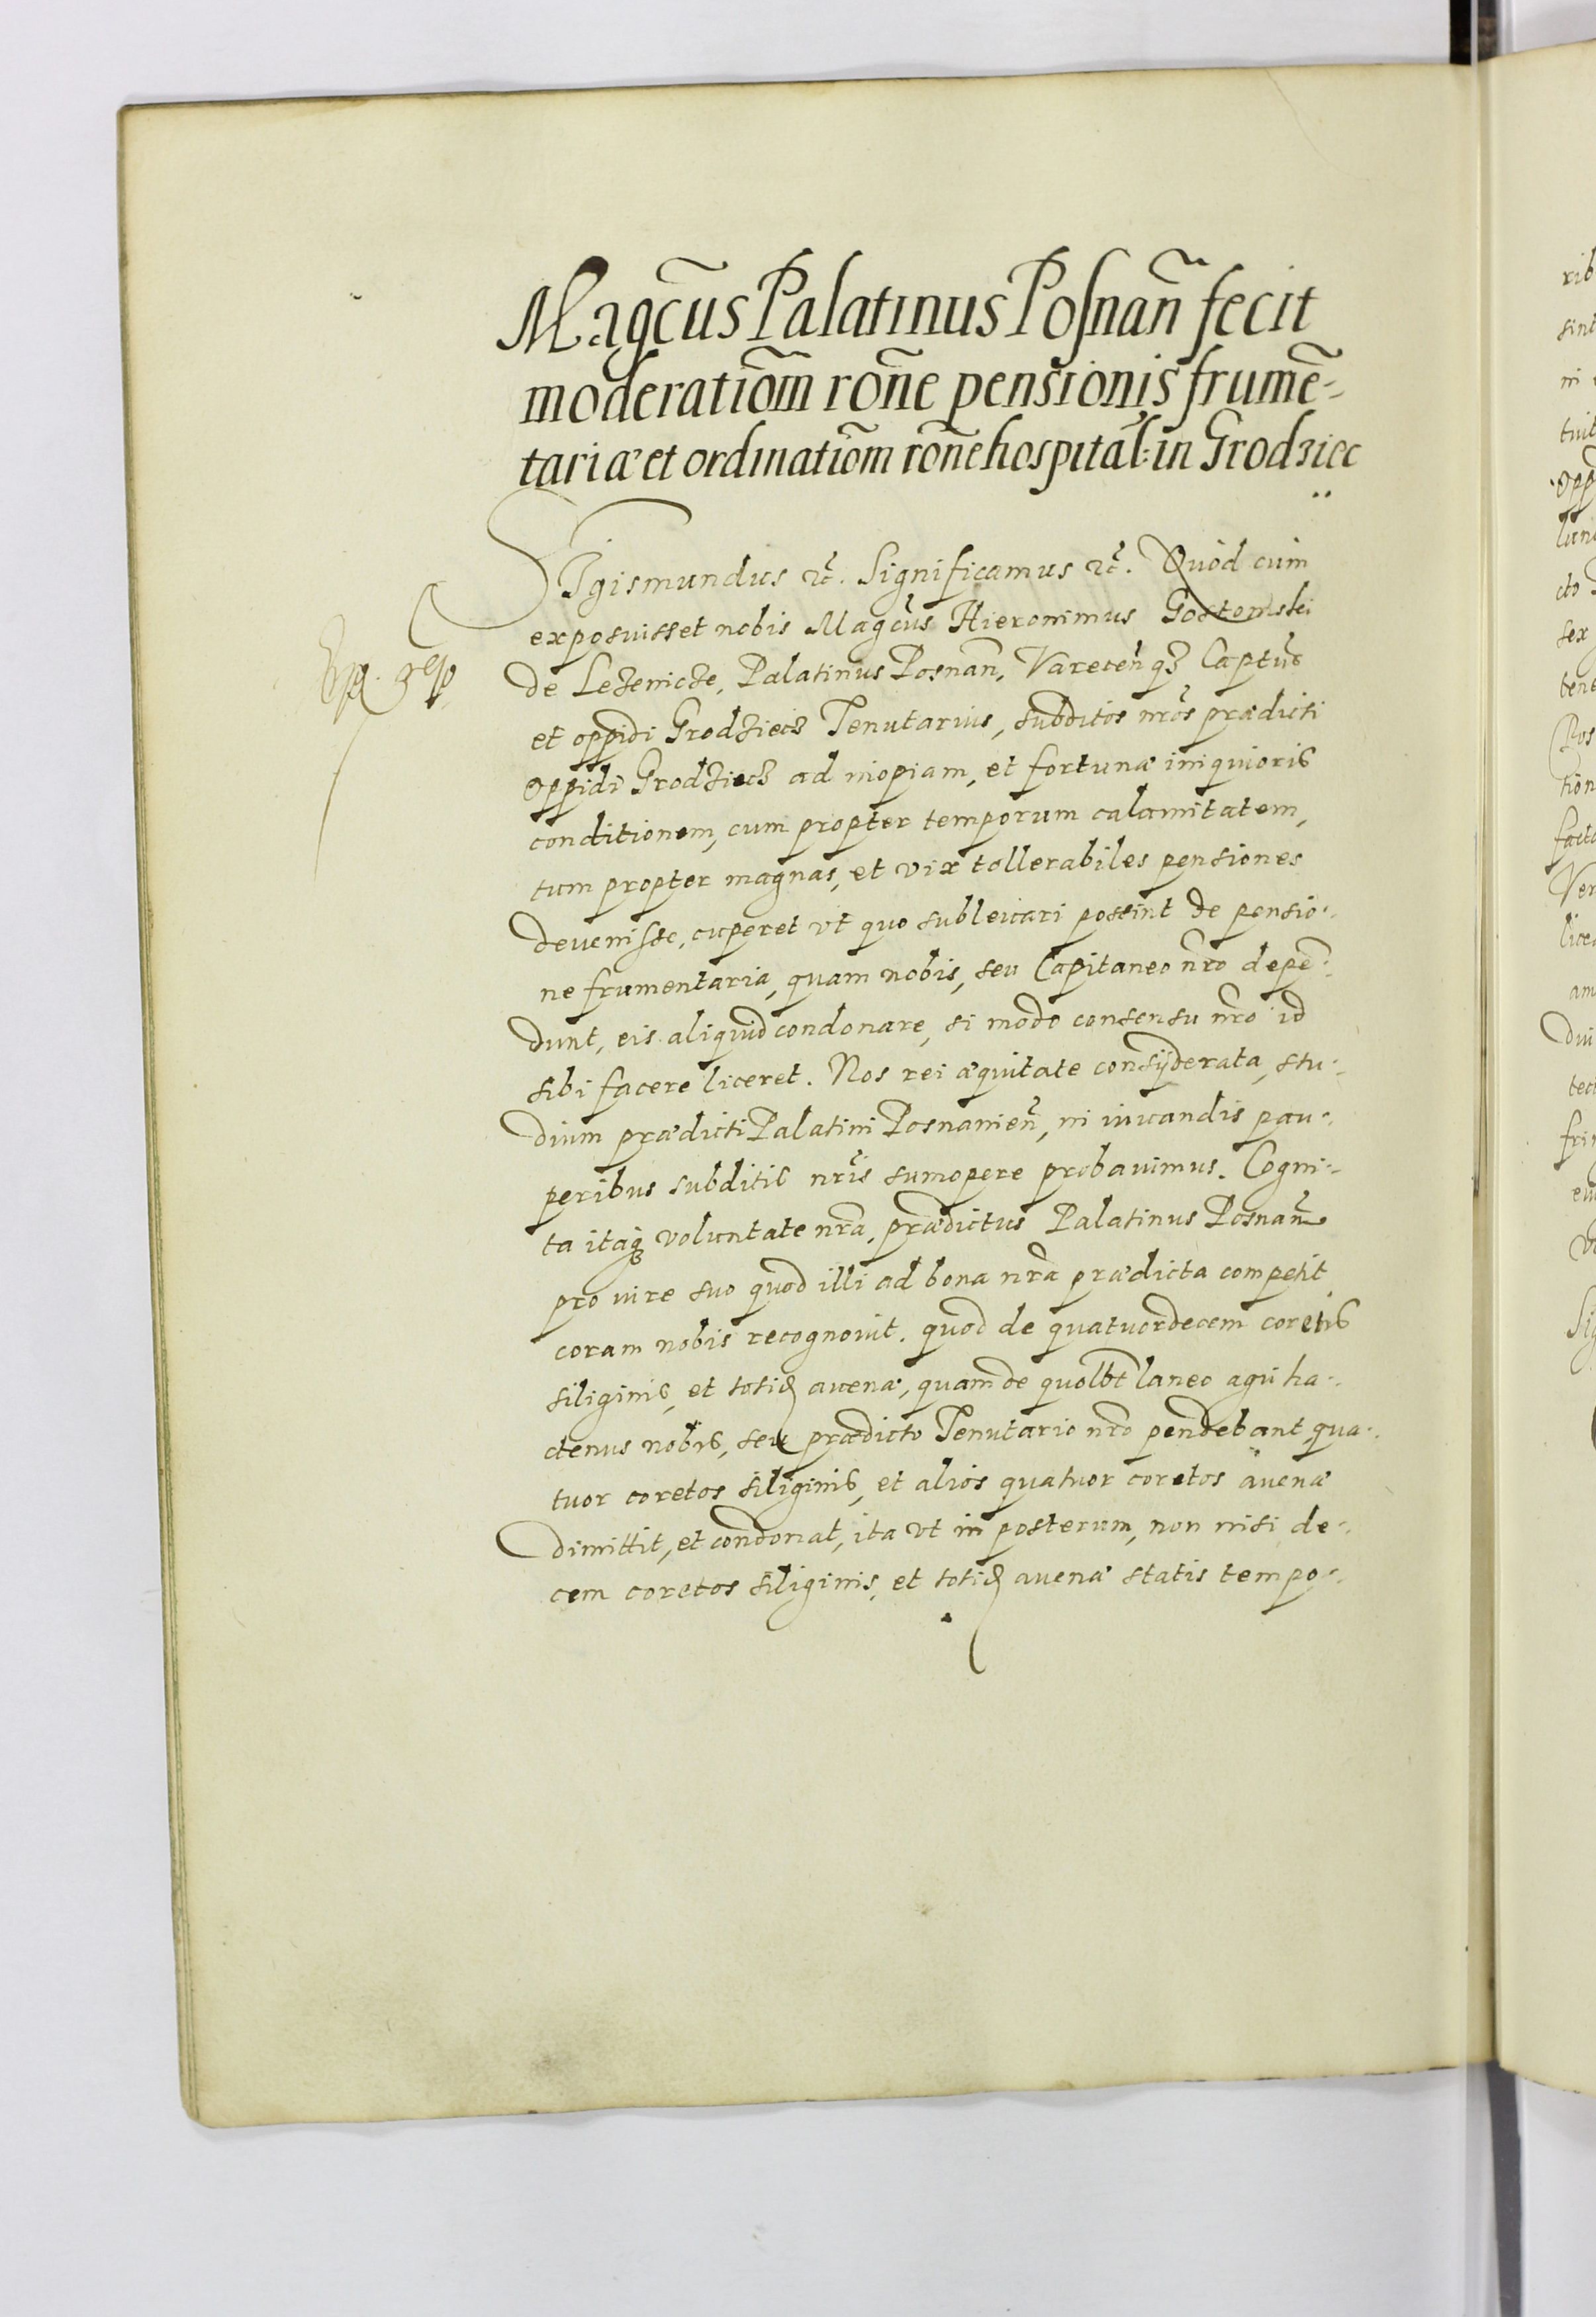 Magc̃us Palatinus Posnañ fecit
moderatiom̃ rõne pensionis frumẽ-
tariæ et ordinatiom̃ rõne hospital: in Grodziec
Sigismundus ꝛc̃. Significamus ꝛc̃. Quòd cum
exposuisset nobis Magc̃us Hieronimus Gostomski
de Lezenicze, Palatinus Posnañ, Vareceñ q3 Captũs
et oppidi Grodziecz Tenutarius, subditos nr̃os prædicti
Oppidi Grodziecz ad inopiam, et fortunæ iniquioris
conditionem, cum propter temporum calamitatem,
tum propter magnas, et vix tollerabiles pensiones
deuenisse, cuperet vt quo subleuari possint de pensio-
ne frumentaria, quam nobis, seu Capitaneo nr̃o depẽ-
dunt, eis aliquid condonare, si modo consensu nr̃o id
sibi facere liceret. Nos rei æquitate consyderata, stu-
dium prædicti Palatini Posnanieñ, in iuuandis pau-
peribus subditis nr̃is sumopere probauimus. Cogni-
ta itaq3 voluntate nr̃a, prædictus Palatinus Posnañ
pro iure suo quod illi ad bona nr̃a prædicta competit
coram nobis recognouit. quod de quatuordecem coretis
siliginis, et totiđ auenæ, quam de quolbt laneo agri ha-
ctenus nobis, seu prædicto Tenutario nr̃o pendebant, qua-
tuor coretos siliginis, et alios quatuor coretos auenæ
dimittit, et condonat, ita vt in posterum, non nisi de-
cem coretos siliginis, et totiđ auenæ statis tempo-